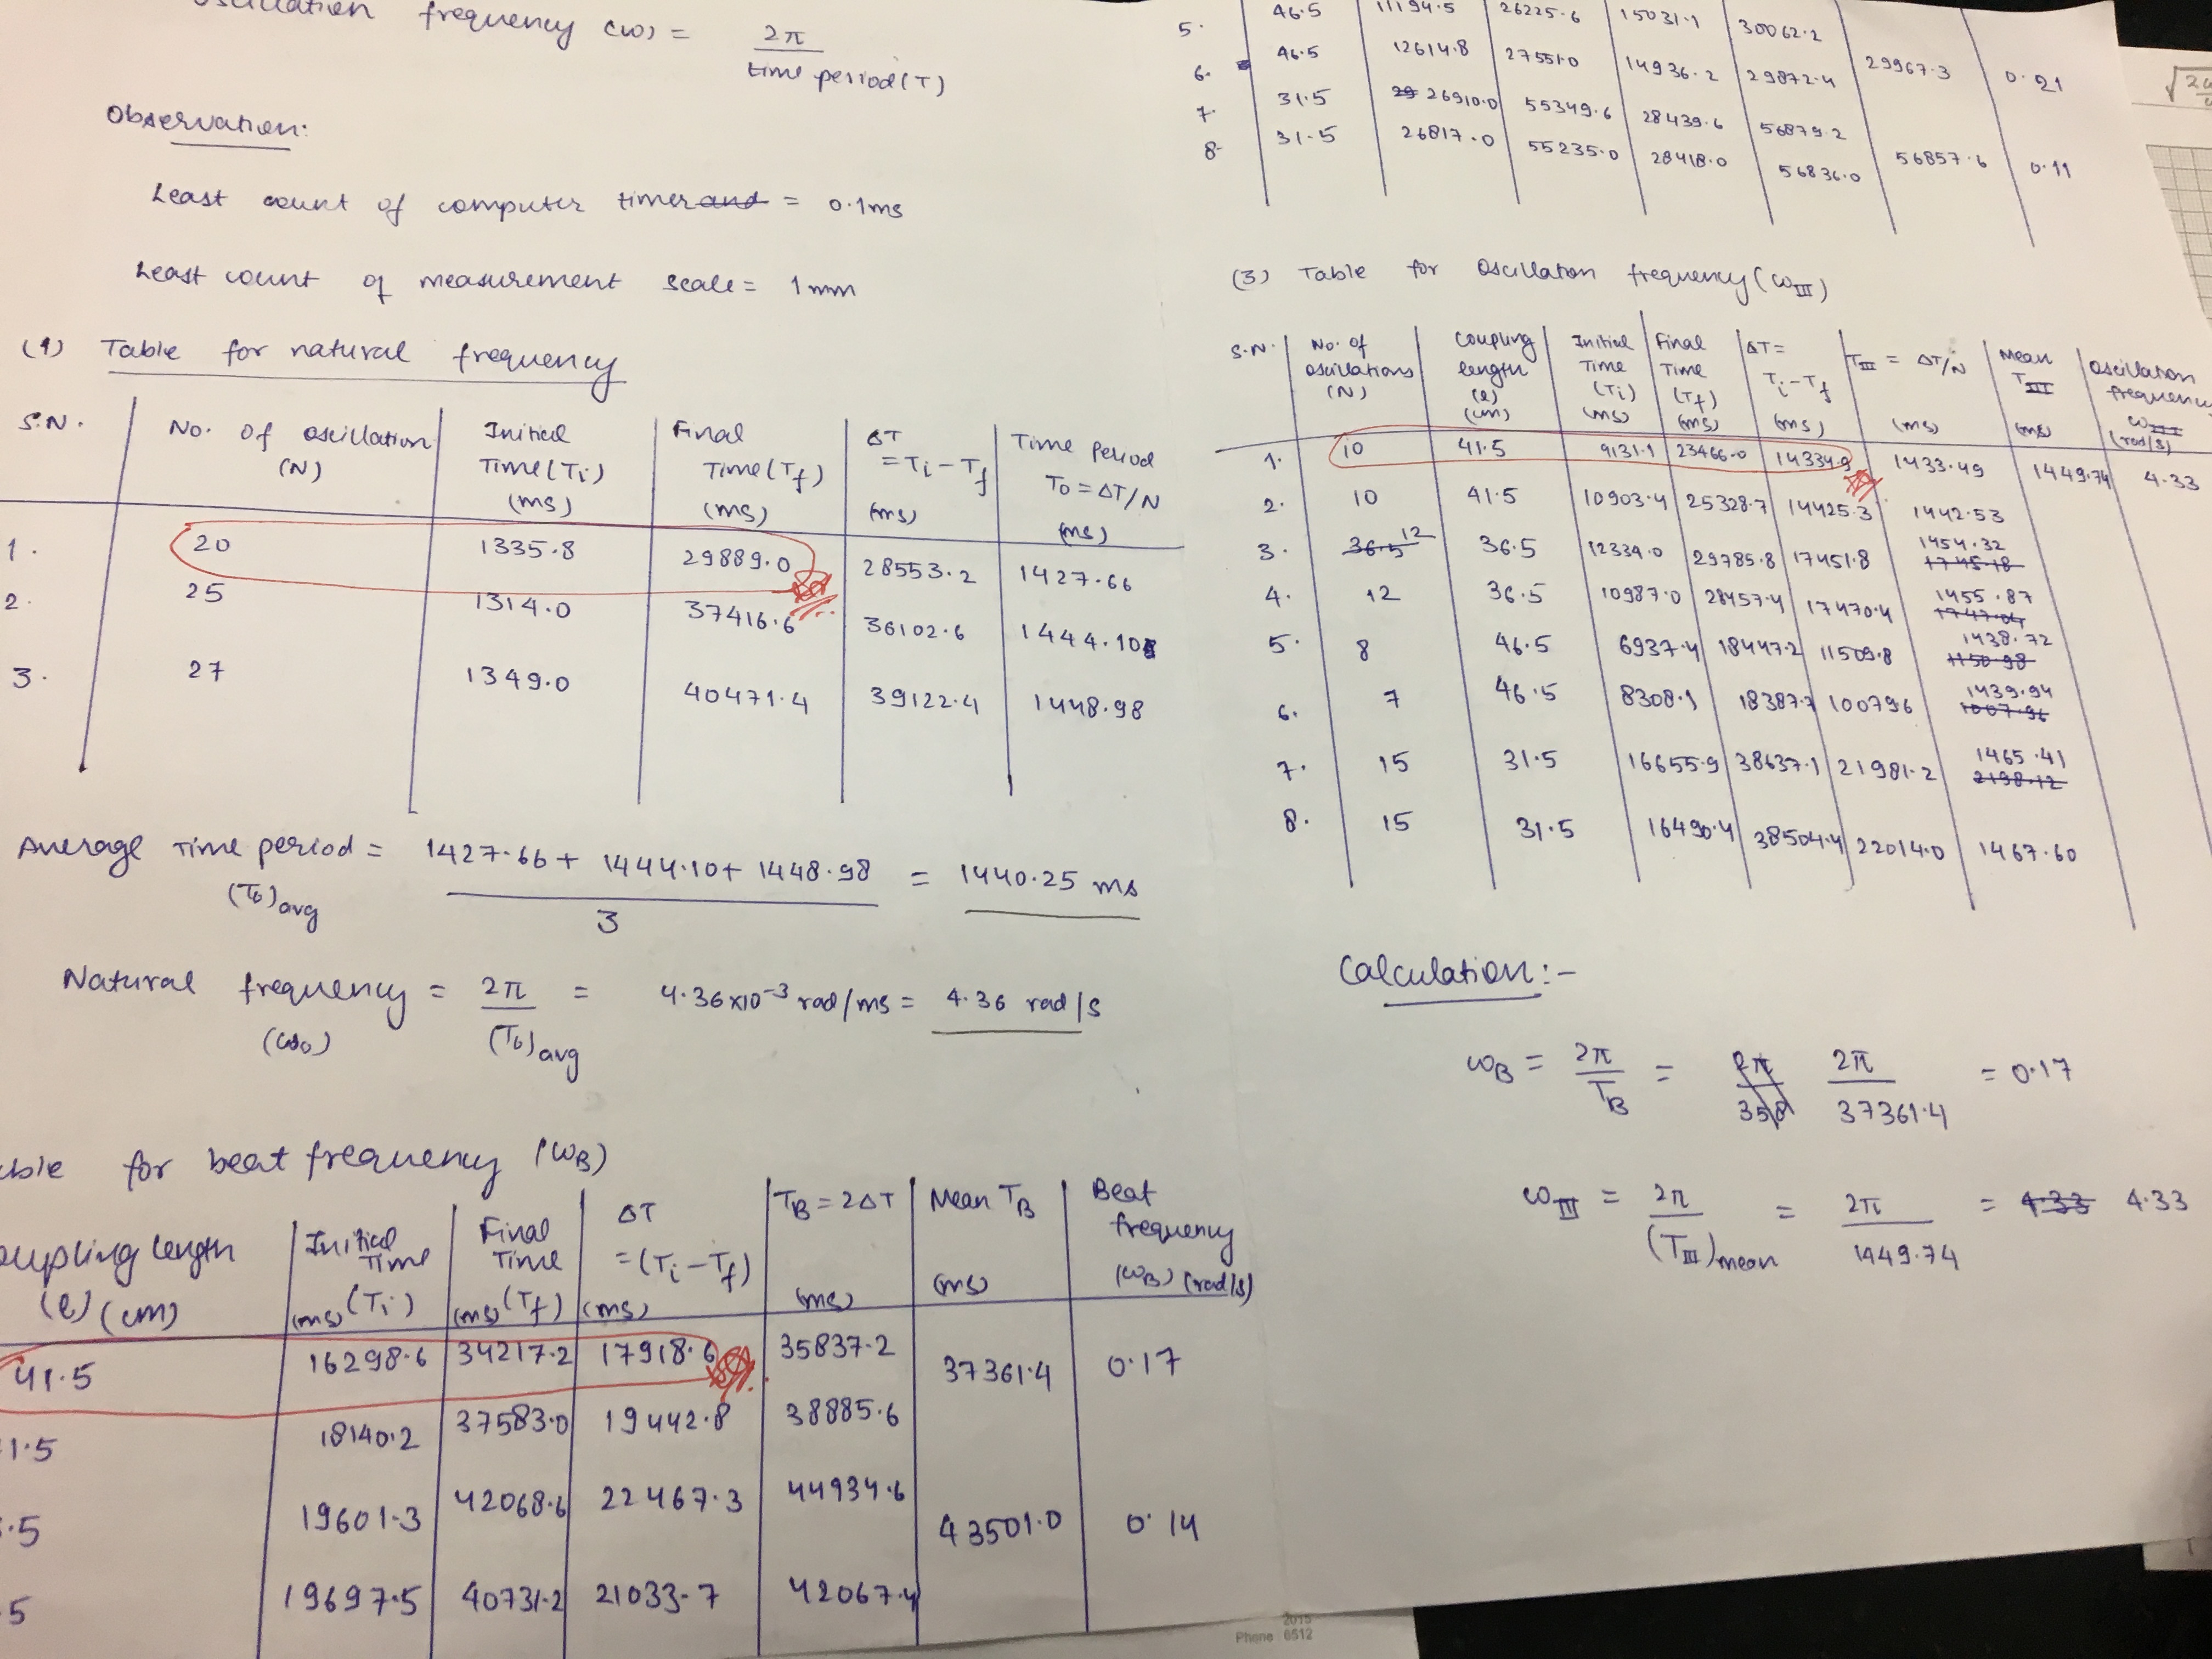 Oscillation frequency (ω) = 2π / time period (T)
Observation:
Least count of computer timer and = 0.1ms
Least count of measurement scale = 1mm
(1) Table for natural frequency
S.N. | No. of oscillation (N) | Initial Time (Ti) (ms) | Final Time (Tf) (ms) | ΔT = Ti - Tf (ms) | Time Period T0 = ΔT/N (ms)
1. 20 1335.8 29889.0 28553.2 1427.66
2. 25 1314.0 37416.6 36102.6 1444.10
3. 27 1349.0 40471.4 39122.4 1448.98
Average Time period (T0)avg = 1427.66 + 1444.10 + 1448.98 / 3 = 1440.25 ms
Natural frequency (ω0) = 2π / (T0)avg = 4.36x10⁻³ rad/ms = 4.36 rad/s
for beat frequency (ωB)
coupling length (l) (cm) | Initial Time (ms) (Ti) | Final Time (ms) (Tf) | ΔT = (Ti - Tf) (ms) | TB = 2ΔT (ms) | Mean TB (ms) | Beat frequency (ωB) (rad/s)
41.5 16298.6 34217.2 17918.6 35837.2 37361.4 0.17
1.5 18140.2 37583.0 19442.8 38885.6
.5 19601.3 42068.6 22467.3 44934.6 43501.0 0.14
5 19697.5 40731.2 21033.7 42067.4
5. 46.5 11194.5 26225.6 15031.1 30062.2
6. 46.5 12614.8 27551.0 14936.2 29872.4 29967.3 0.21
7. 31.5 29 26910.0 55349.6 28439.6 56879.2
8. 31.5 26817.0 55235.0 28418.0 56836.0 56857.6 0.11
(3) Table for Oscillation frequency (ωIII)
S.N. | No. of oscillations (N) | Coupling length (l) (cm) | Initial Time (Ti) (ms) | Final Time (Tf) (ms) | ΔT = Ti - Tf (ms) | TIII = ΔT/N (ms) | Mean TIII (ms) | Oscillation frequency ωIII (rad/s)
1. 10 41.5 9131.1 23466.0 14334.9 1433.49 1449.74 4.33
2. 10 41.5 10903.4 25328.7 14425.3 1442.53
3. 36.5 12 36.5 12334.0 29785.8 17451.8 1454.32 1745.18
4. 12 36.5 10987.0 28457.4 17470.4 1455.87 1747.04
5. 8 46.5 6937.4 18447.2 11509.8 1438.72 1150.98
6. 7 46.5 8308.1 18387.7 10079.6 1439.94 1007.96
7. 15 31.5 16655.9 38637.1 21981.2 1465.41 2198.12
8. 15 31.5 16490.4 38504.4 22014.0 1467.60
Calculation:-
ωB = 2π / TB = 2π / 358 2π / 37361.4 = 0.17
ωIII = 2π / (TIII)mean = 2π / 1449.74 = 4.33 4.33
2015
Phone 6512